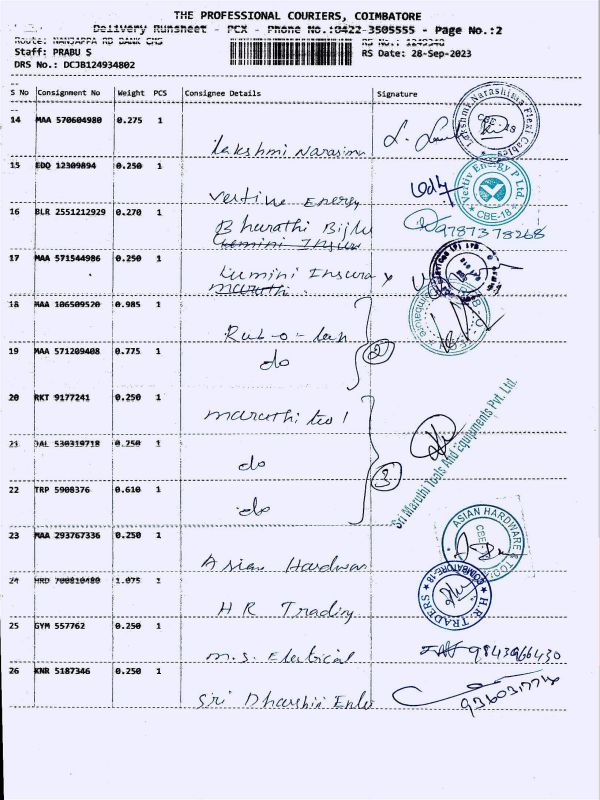 THE PROFESSIONAL COURIERS, COIMBATORE
Delivery Runsheet - PCX - Phone No.:0422-3505555 - Page No.:2
Route: NANJAPPA RD BANK CMS
Staff: PRABU S RS Date: 28-Sep-2023
DRS No.: DCJB124934802
S No Consignment No Weight PCS Consignee Details Signature
14 MAA 570604980 0.275 1
Lakshmi Narasim
Lakshmi Narashima Flexi Cables CBE-18
15 EDQ 12309894 0.250 1
Vertive Energy
Vertiv Energy P Ltd. CBE-18
16 BLR 2551212929 0.270 1
Bharathi Bijlu
Gemini Insur
9787378268
17 MAA 571544986 0.250 1
Lumini Insura
maruthi.
18 MAA 106509520 0.985 1
Rub-o-lan
2
19 MAA 571209408 0.775 1
do
20 RKT 9177241 0.250 1
maruthi tool
21 JAL 530319718 0.250 1
do
3
Sri Maruthi Tools And Equipments Pvt. Ltd.
22 TRP 5908376 0.610 1
do
23 MAA 293767336 0.250 1
Asian Hardwar
ASIAN HARDWARE & TOOLS CBE
24 HRD 700810480 1.075 1
H R Trading
H.R. TRADERS COIMBATORE-18
25 GYM 557762 0.250 1
M.S. Electrical
9843966430
26 KNR 5187346 0.250 1
Sri Dharshin Ente